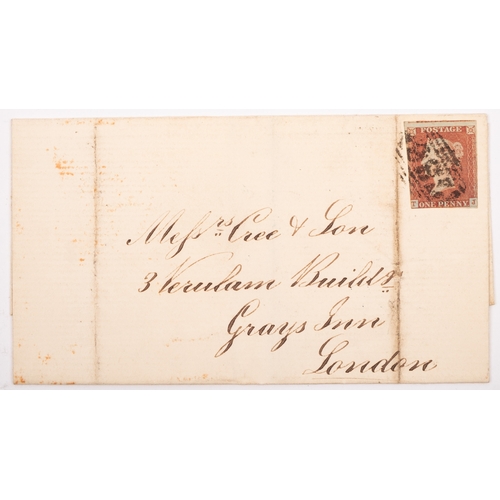 POSTAGE
ONE PENNY
Messrs Cree & Son
3 Verulam Buildgs
Grays Inn
London